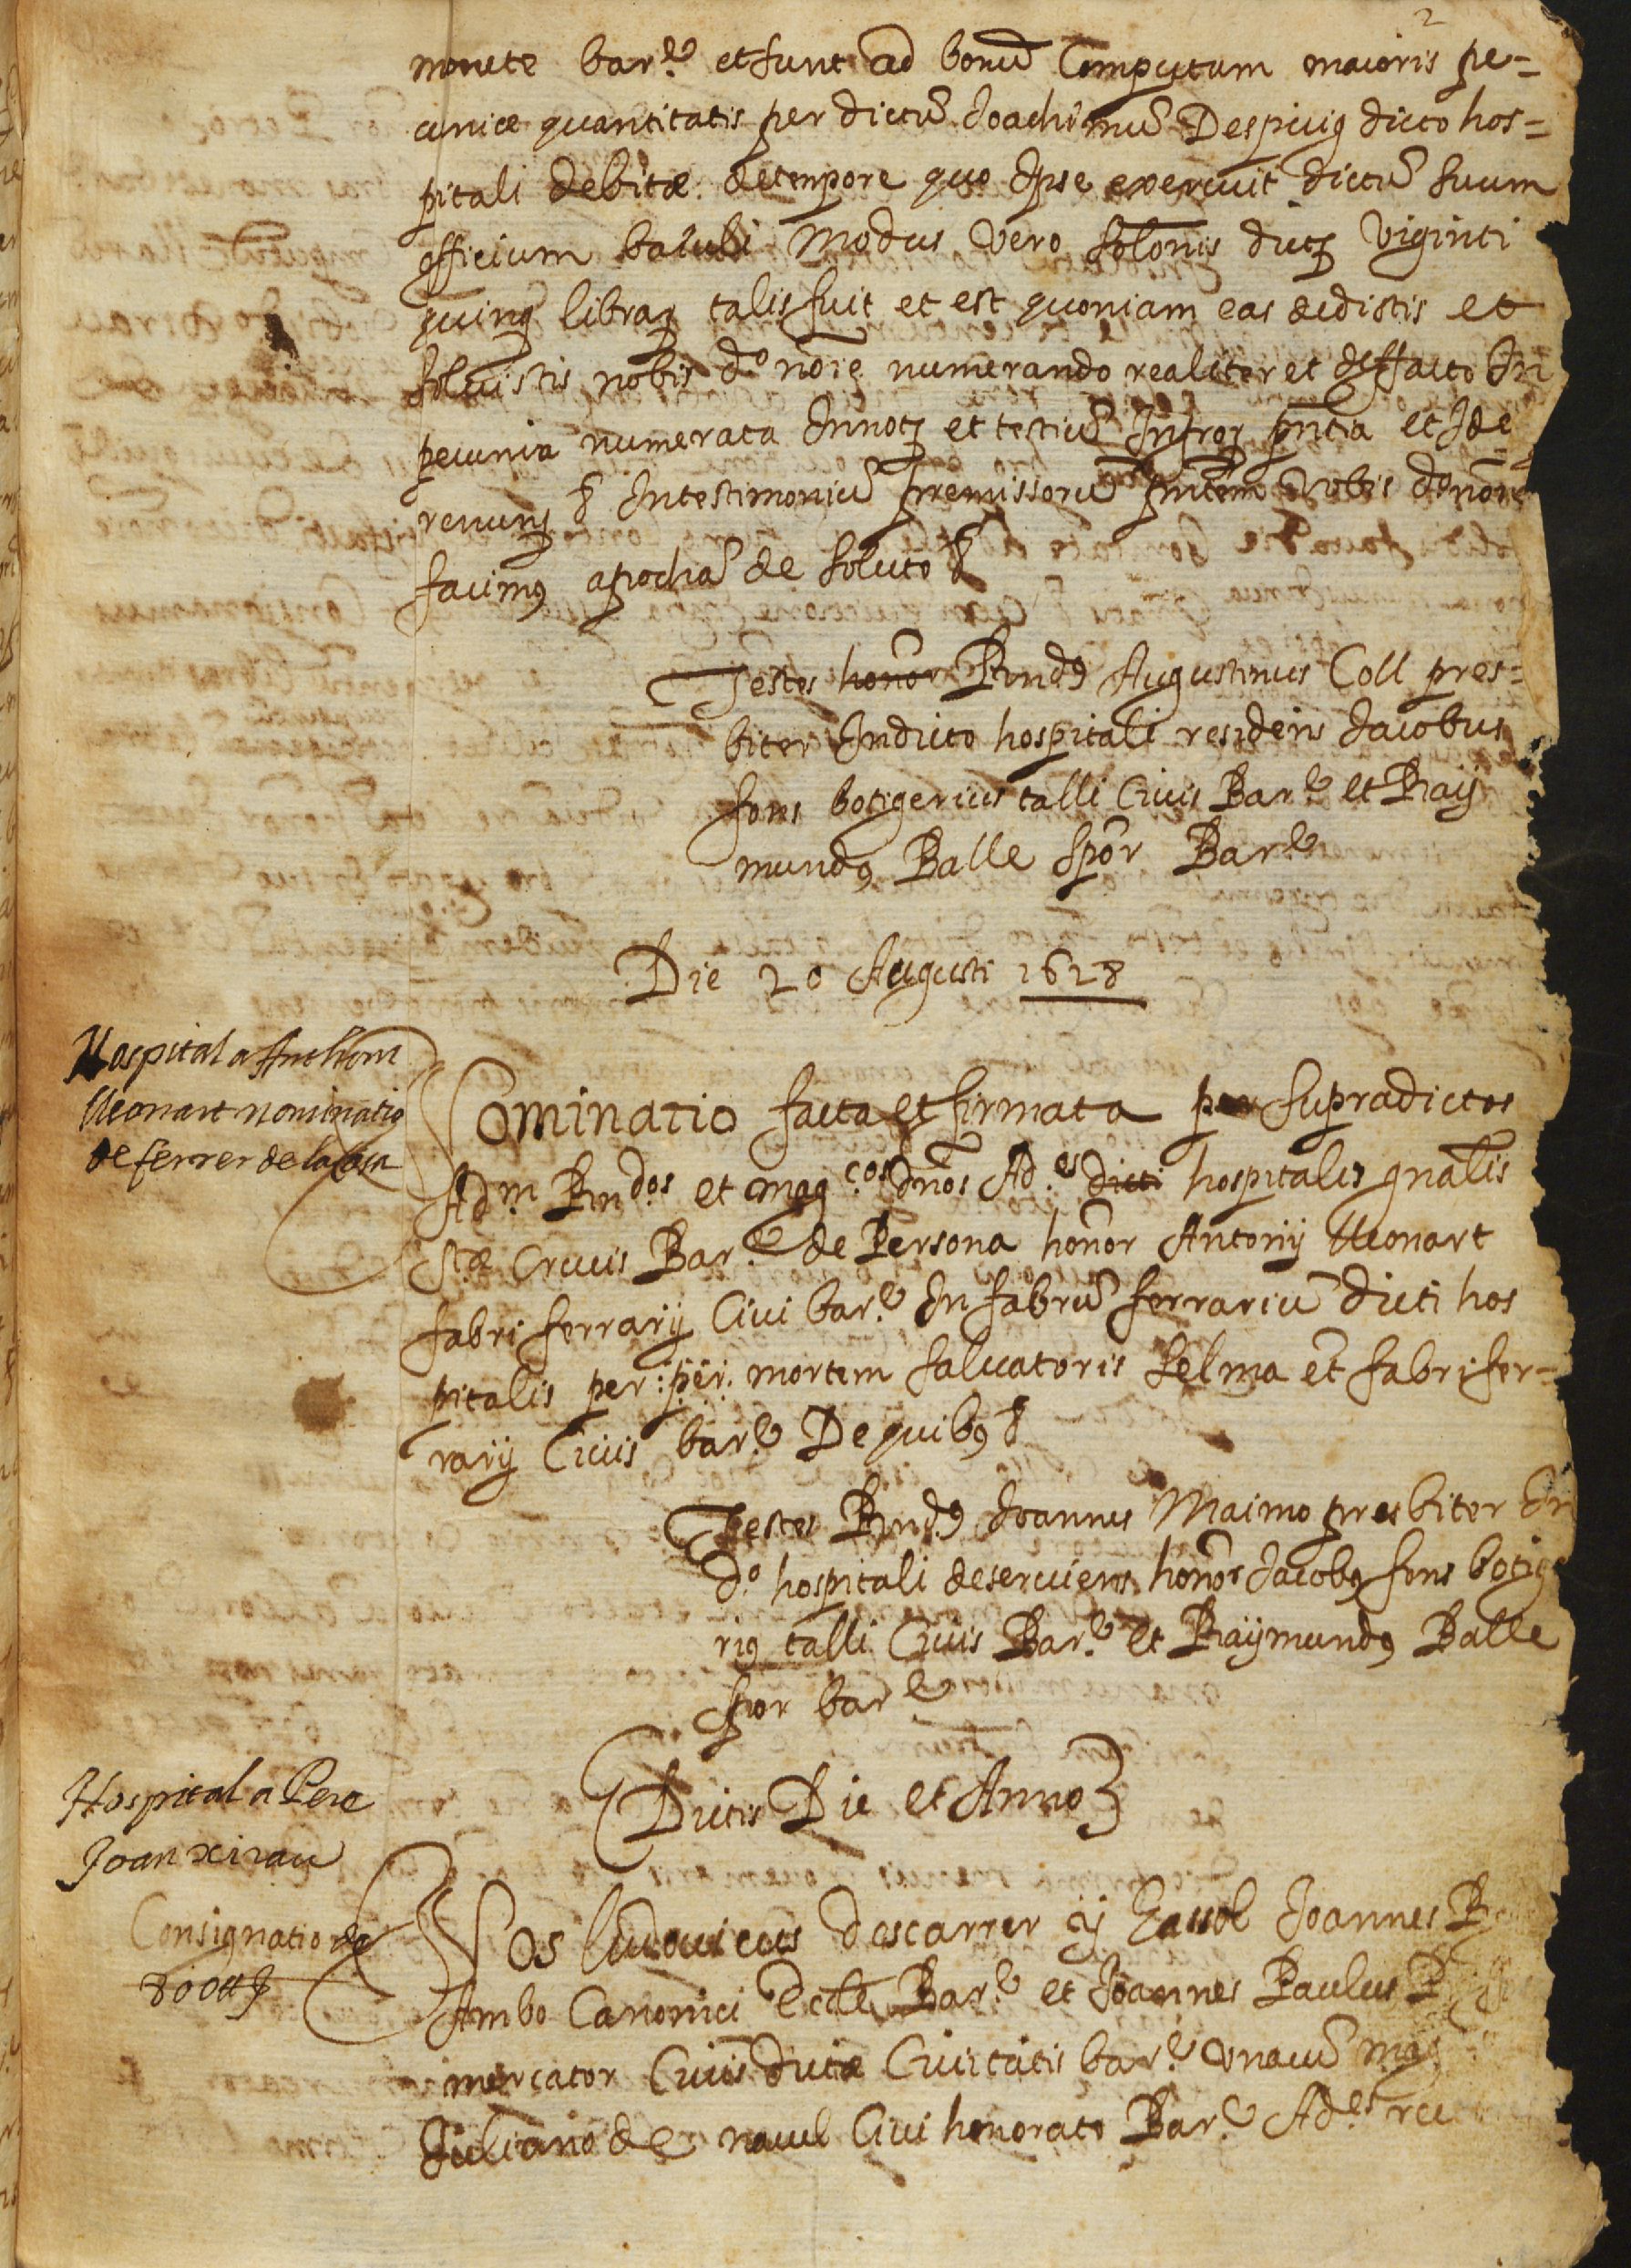 2
monete bar.e et sunt ad bonũ Computum maioris pe=
cuniæ quantitatis per dictũ Joachimũ Despuig dicto hos=
pitali debitæ de tempore quo Ipse exercuit dictũ suum
officium baiuli Modus vero solonis dictꝝ viginti
quinqꝫ libraꝝ talis fuit et est quoniam eas dedistis et
soluistis nobis do noie numerando realiter et de facto In
pecunia numerata In notꝝ et testiũ Infroꝝ pñtia et Ide
renunꝫ & In testimoniũ premissorũ pñtem vobis do noie
facimꝰ apocham̃ de soluto &
Testes honor Rndꝰ Augustinus Coll pres=
biter In dicto hospitali residens Jacobus
fons botigerius talli Ciuis Bar.e et Raÿ
mundꝰ Balle spõr Bar.e
Die 20 Augusti 1628
Hospital a Anthoni
lleonart nominatio
de ferrer de la casa
Nominatio facta et firmata per supradictos
Adm. Rndos et mag.cos dños Ad.es dicti hospitalis gñalis
Stæ Crucis Bar.e de Persona honor Antonij lleonart
fabri ferrarij Ciui bar.e In fabrũ ferrariũ dicti hos
pitalis per : per : mortem saluatoris selma et fabri fer=
rarij Ciuis bar.e De quibꝰ &
Testes Rndꝰ Joannes Maimo presbiter In
do hospitali deseruiens honor Jacobꝰ fons botige
riꝰ talli Ciuis Bar.e et Raÿmundꝰ Balle
spor bar.e
Dictis Die et Anno
Hospital a Pere
Joan xirau
Consignatio de
Nos ludouicus descarrer y Cassol Joannes
Ambo Canonici Eccle Bar.e et Joannes Paulus
mercator Ciuis dictæ Ciuitatis bar.e vna cũ mag
Juliano de nauel Ciui honorato Bar.e Ad.es